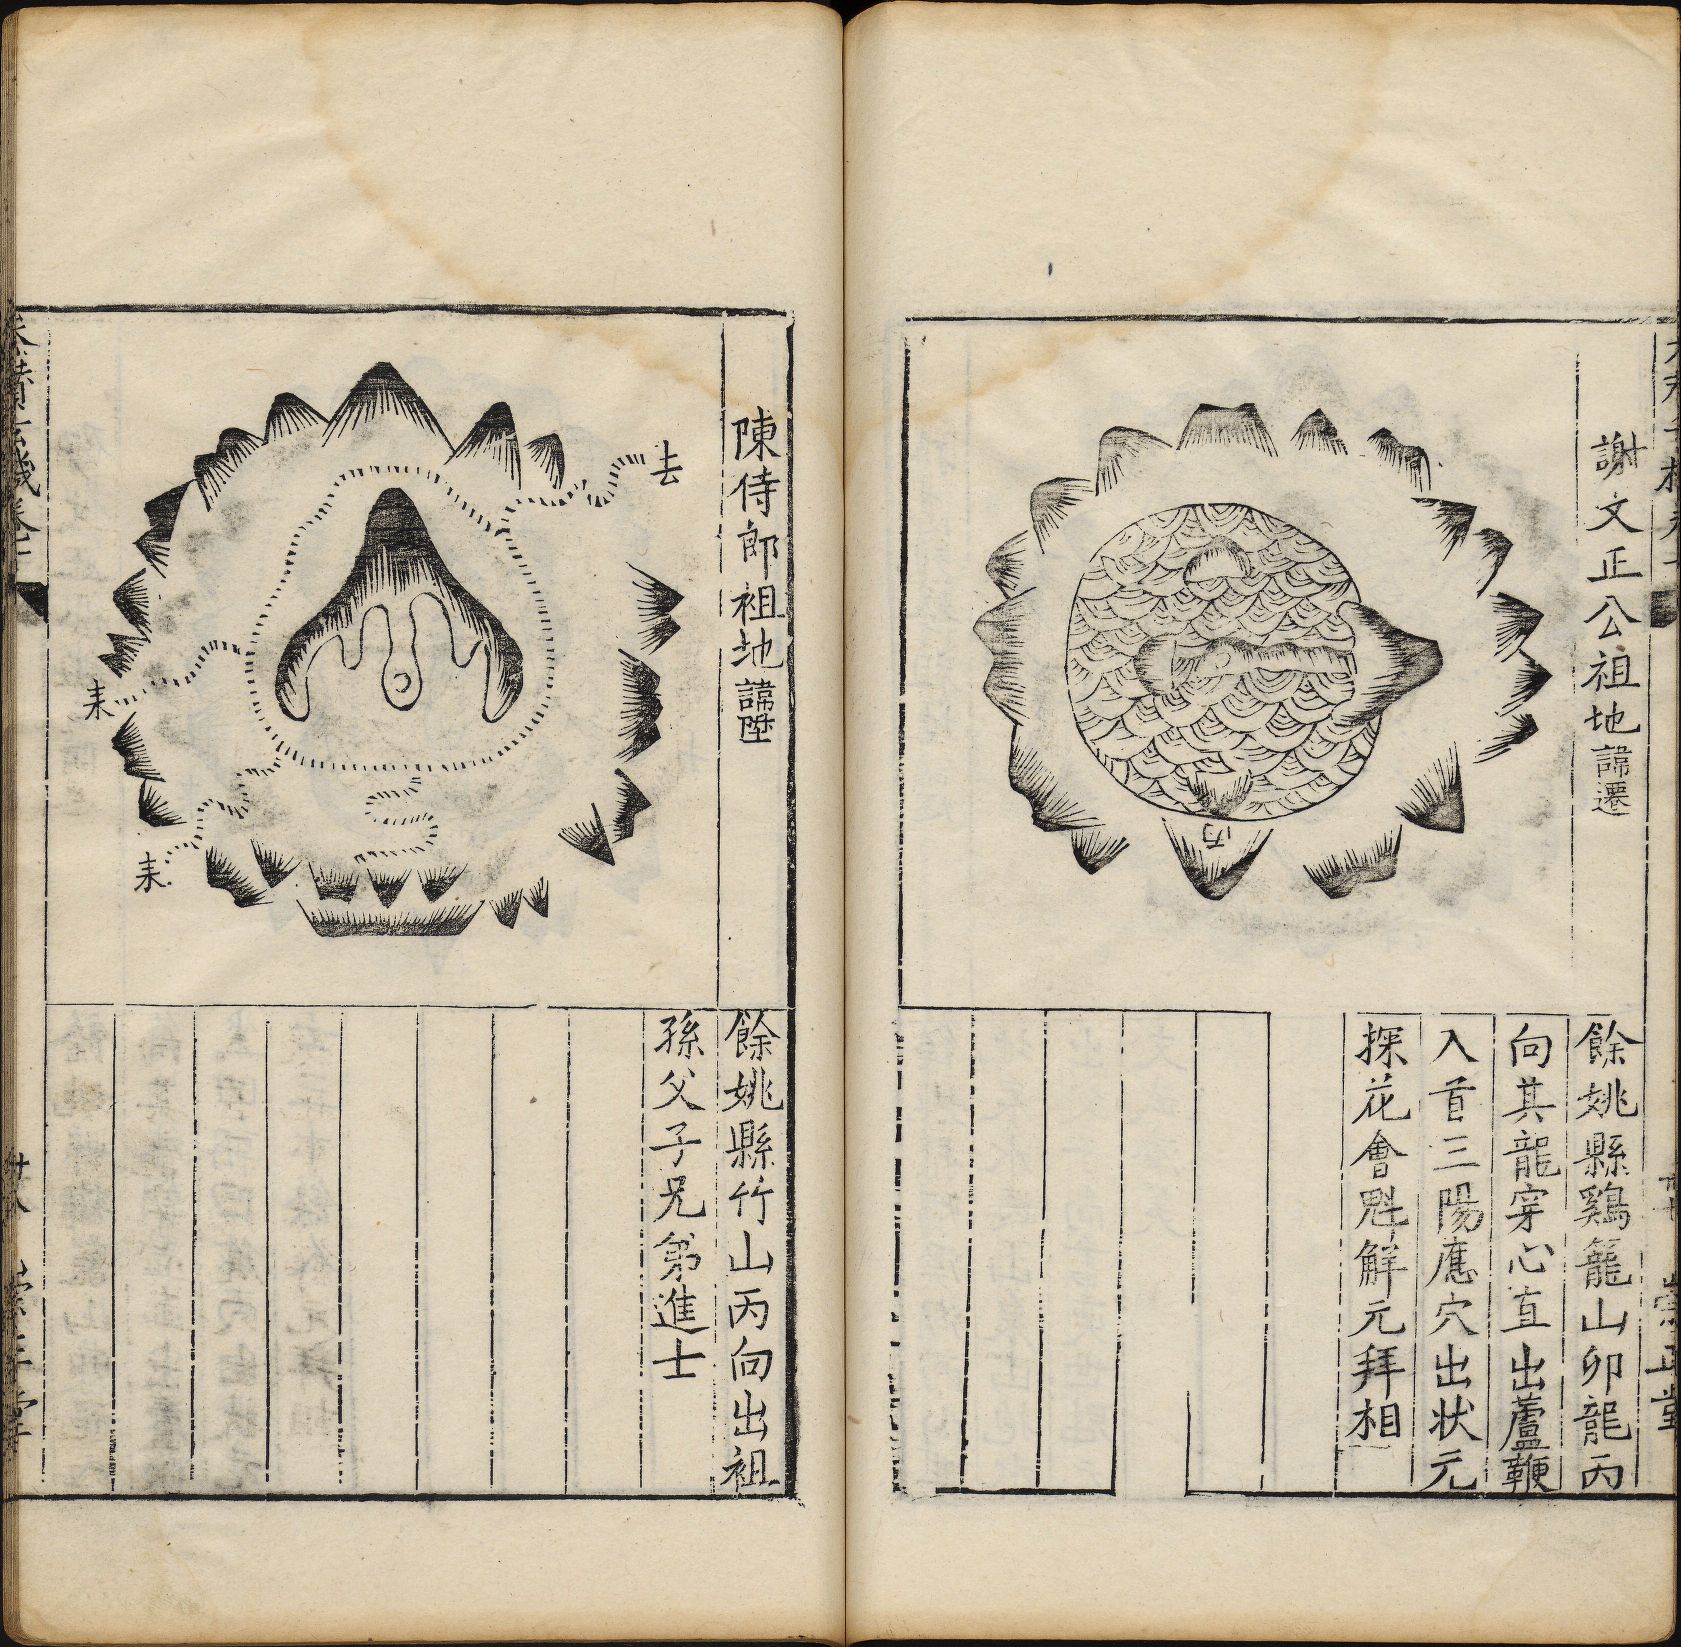 謝文正公祖地諱遷
丙
餘姚縣鷄籠山卯龍丙
向其龍穿心直出蘆鞭
入首三陽應穴出状元
探花會魁解元拜相
崇正堂
陳侍郎祖地諱陞
去
来
来
餘姚縣竹山丙向出祖
孫父子兄弟進士